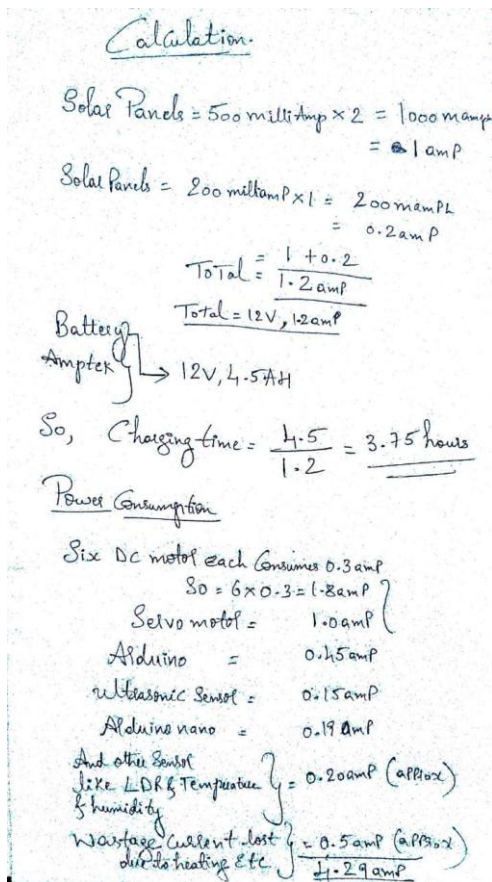 Calculation.
Solar Panels = 500 milliAmp × 2 = 1000 mamph
= 1 amp
Solar Panels = 200 milliamp × 1 = 200 mamph
= 0.2 amp
Total = 1 + 0.2
= 1.2 amp
Total = 12V, 1.2 amp
Battery
Amptek } → 12V, 4.5AH
So, Charging time = 4.5 / 1.2 = 3.75 hours
Power Consumption
Six DC motor each Consumes 0.3 amp
So = 6 × 0.3 = 1.8 amp
Servo motor = 1.0 amp
Arduino = 0.45 amp
Ultrasonic Sensor = 0.15 amp
Arduino nano = 0.19 Amp
And other Sensor
like LDR & Temperature } = 0.20 amp (approx)
& humidity
Wastage Current lost } = 0.5 amp (approx)
due to heating Etc
4.29 amp